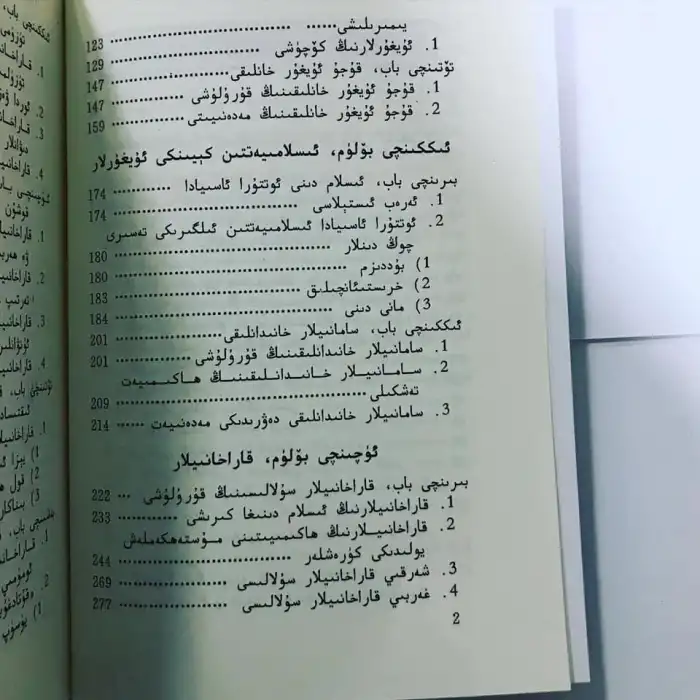 يىمىرىلىشى
1. ئۇيغۇرلارنىڭ كۆچۈشى ........ 123
تۆتىنچى باب، قۇجۇ ئۇيغۇر خانلىقى ........ 129
1. قۇجۇ ئۇيغۇر خانلىقىنىڭ قۇرۇلۇشى ........ 147
2. قۇجۇ ئۇيغۇر خانلىقىنىڭ مەدەنىيىتى ........ 147
159
ئىككىنچى بۆلۈم، ئىسلامىيەتتىن كېيىنكى ئۇيغۇرلار
بىرىنچى باب، ئىسلام دىنى ئوتتۇرا ئاسىيادا ........ 174
1. ئەرەب ئىستىلاسى ........ 174
2. ئوتتۇرا ئاسىيادا ئىسلامىيەتتىن ئىلگىرىكى تەسىرى
چوڭ دىنلار ........ 180
1) بۇددىزم ........ 180
2) خرىستىئانچىلىق ........ 183
3) مانى دىنى ........ 184
ئىككىنچى باب، سامانىيلار خاندانلىقى ........ 201
1. سامانىيلار خاندانلىقىنىڭ قۇرۇلۇشى ........ 201
2. سامانىيلار خاندانلىقىنىڭ ھاكىمىيەت
تەشكىلى ........ 209
3. سامانىيلار خاندانلىقى دەۋرىدىكى مەدەنىيەت ...... 214
ئۈچىنچى بۆلۈم، قاراخانىيلار
بىرىنچى باب، قاراخانىيلار سۇلالىسىنىڭ قۇرۇلۇشى ... 222
1. قاراخانىيلارنىڭ ئىسلام دىنىغا كىرىشى ........ 233
2. قاراخانىيلارنىڭ ھاكىمىيىتىنى مۇستەھكەملەش
يولىدىكى كۈرەشلەر ........ 244
3. شەرقىي قاراخانىيلار سۇلالىسى ........ 269
4. غەربىي قاراخانىيلار سۇلالىسى ........ 277
2